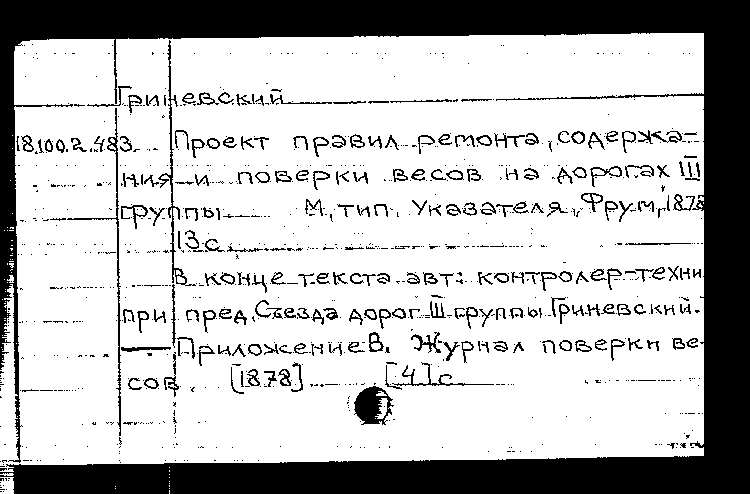 Гриневский
18.100.2.483. Проект правил ремонта, содержа-
ния и поверки весов на дорогах III
группы М, тип. Указателя, Фрум, 1878
13 с.
В конце текста авт: контролер-техни
при пред. Съезда дорог III группы Гриневский.
— Приложение В. Журнал поверки ве-
сов. [1878] [4] с.